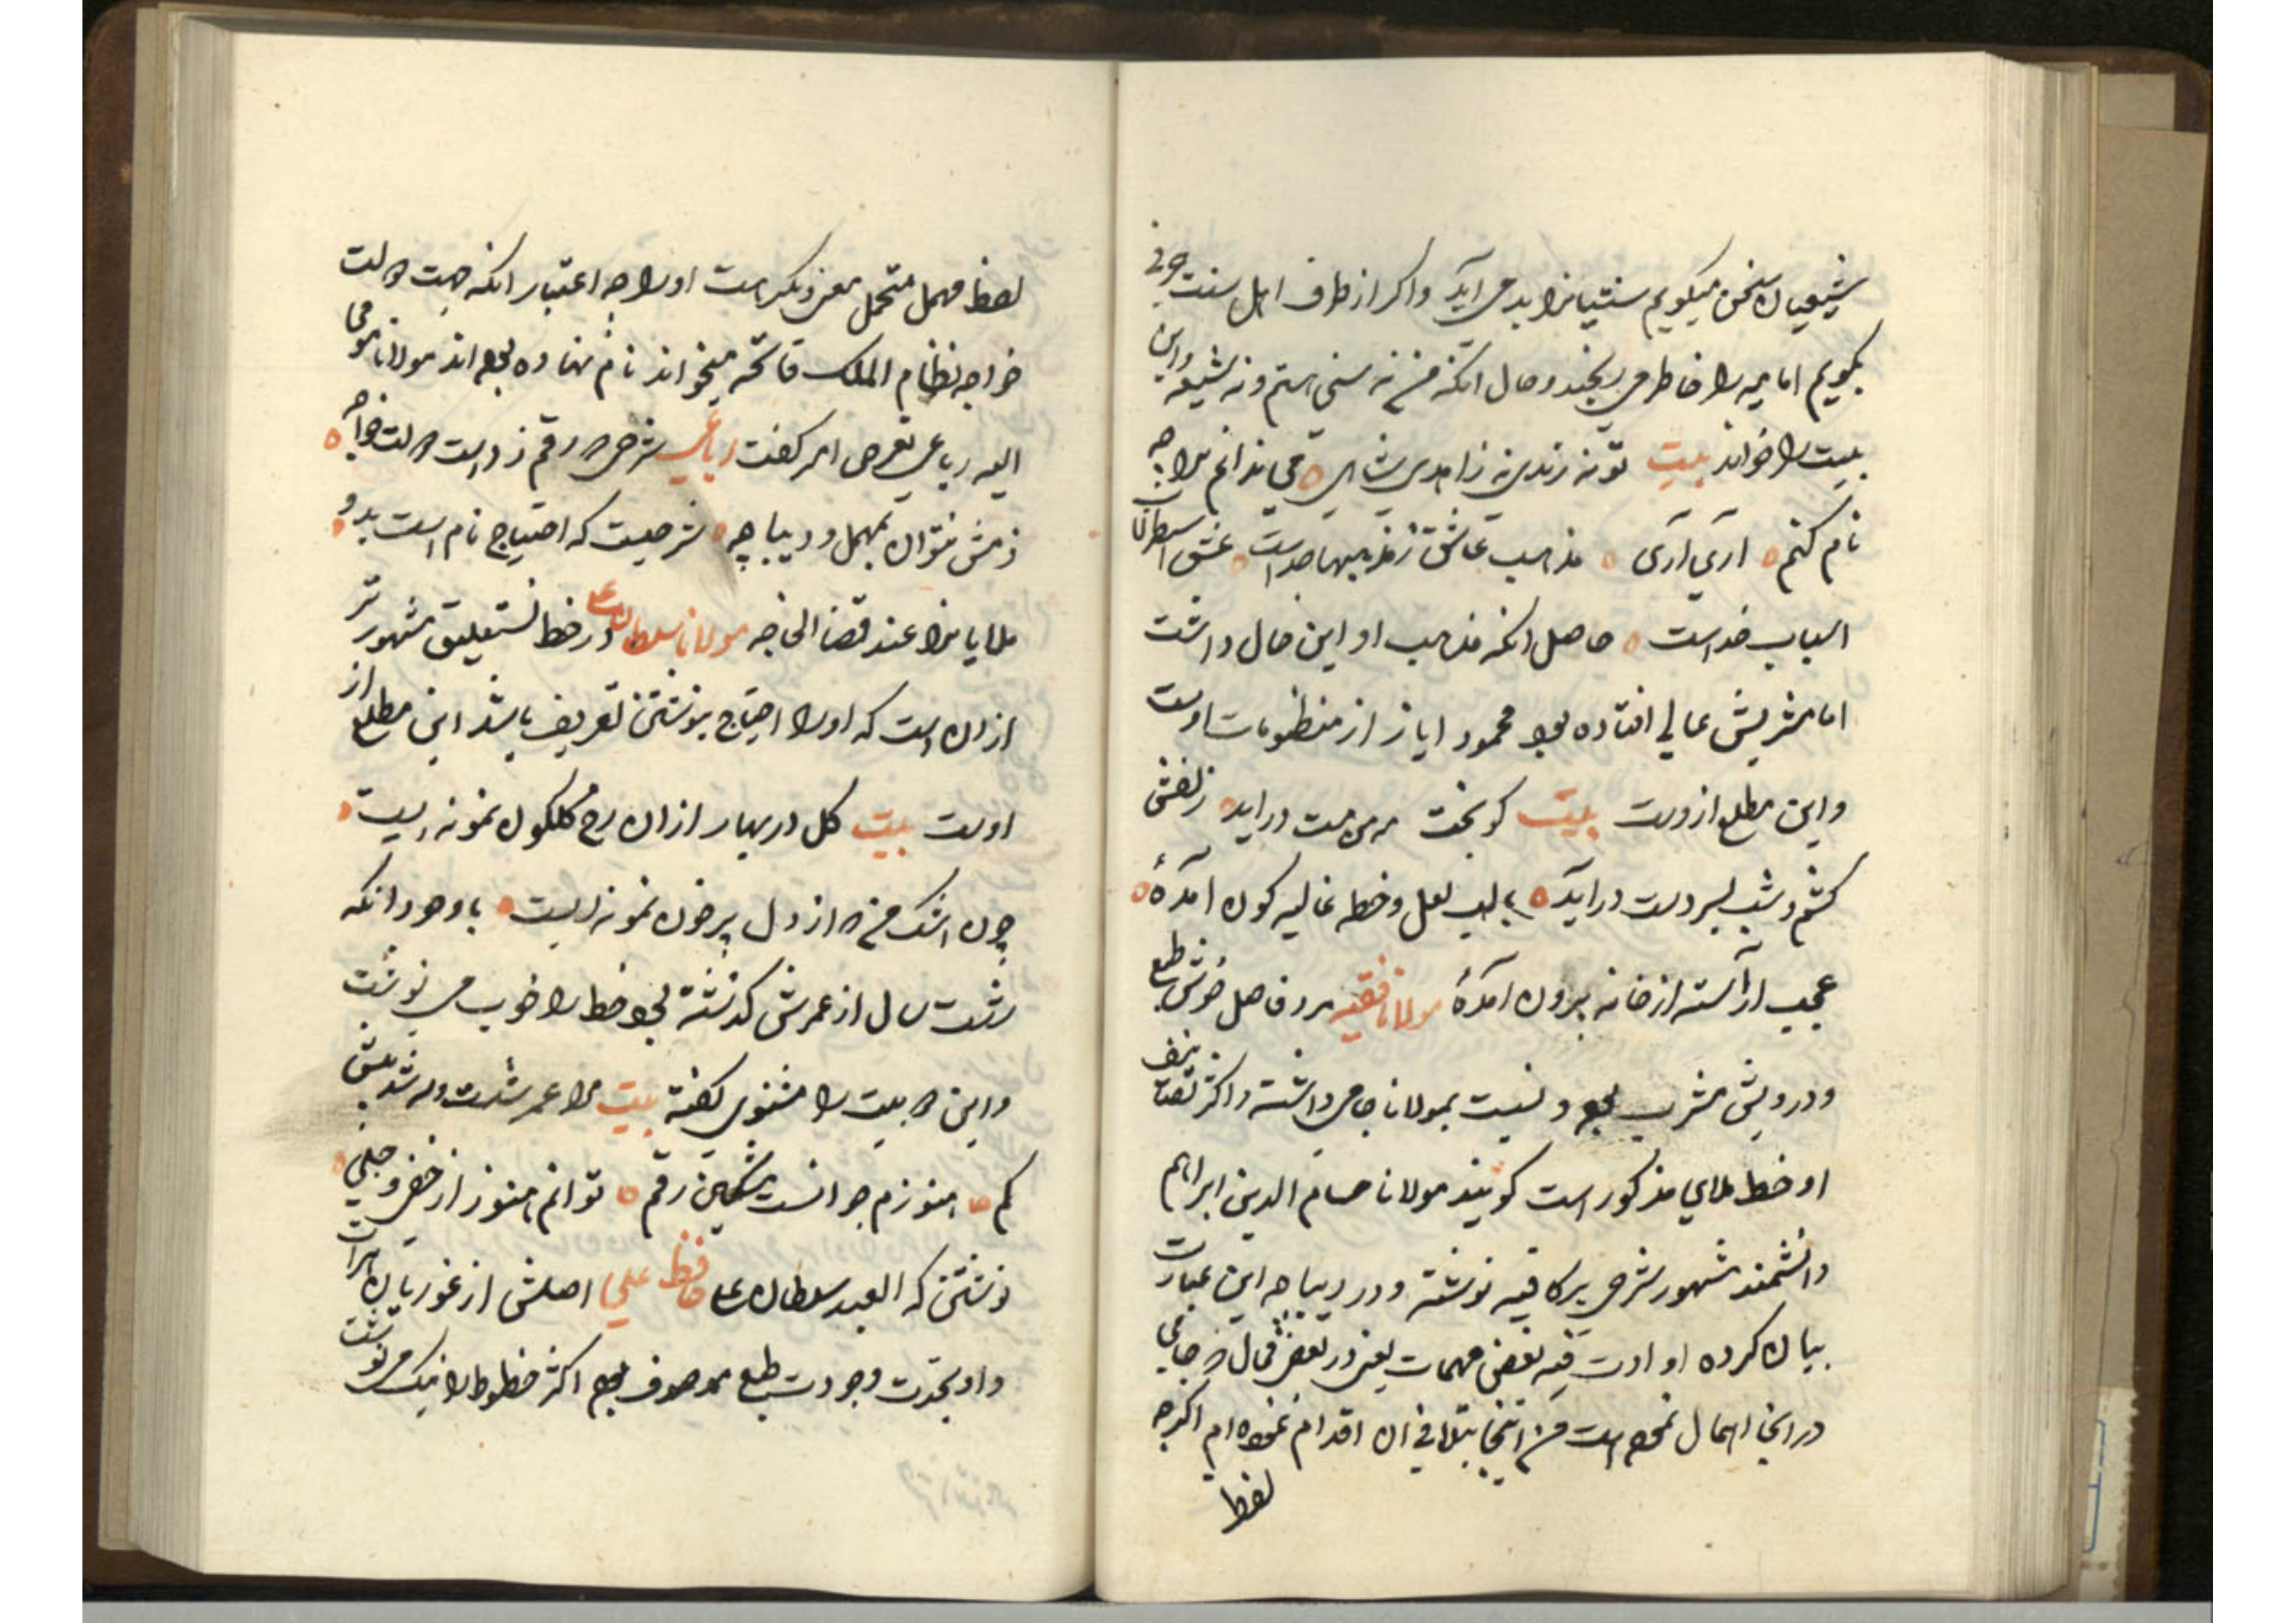 شیعیان سخن میکویم سنتیانرا بد می آید واکر از طرف اهل سنت حرفی
بکویم امامیه را خاطر می رنجد وحال انکه من نه سنی هستم ونه شیعه واین
بیت را خواند بیت تو نه رندی نه زاهدی شاهی می ندانم ترا چه
نام کنم اری آری مذهب عاشق ز مذهبها جداست عشق اسطرلاب
اسباب خداست حاصل انکه مذهب او این حال داشت
اما مشربش عالی افتاده بود محمود ایاز از منظومات اوست
واین مطلع ازوست بیت کو بخت که می مست دراید زلفش
کشم وشب بسر دست دراید با لب لعل وخط غالیه کون امدهٔ
عجب آراسته از خانه برون آمدهٔ مولانا فقیه مرد فاضل خوش طبع
ودرویش مشرب بوده ونسبت بمولانا جامی داشته واکثر تصانیف
او خط ملای مذکور است کویند مولانا حسام الدین ابراهیم
دانشمند مشهور شرحی بر کافیه نوشته ودر دیباچه این عبارت
بیان کرده او ادرت فیه بعض مهمات یعنی در بعض محال که جامی
در انجا اهمال نموده است من انجا بتلافی ان اقدام نموده ام اکرچه
لفظ
لفظ مهمل متحمل معنی دیکر است اورا چه اعتبار انکه جهت رسالت
خواجه نظام الملک فاتحه میخواند نام نهاده بوده اند مولانا مومی
الیه رباعی تعرض امر کفت رباعی شرحی که رقم زد است رسالت خواجه
ذمش نتوان بمهمل ودیباچه شرحیست که احتیاج نام است بدو
ملایانرا عند قضا الحاجه مولانا سلطان علی در خط نستعلیق مشهورتر
از ان است که اورا احتیاج بنوشتن تعریف باشد این مطلع از
اوست بیت کل در بهار از ان رخ کلکون نمونه ایست
چون اشک من که از دل پر خون نمونه ایست باوجود انکه
شصت سال از عمرش کذشته بود خط را خوب می نوشت
واین دو بیت را مثنوی کفته بیت مرا عمر شصت وسه شد بیش
کم هنوزم جوانست مشکین رقم توانم هنوز از خفی وجلی
نوشتن که العبد سلطان علی حافظ علی اصلش از غوریان هرات
واو بحدت وجودت طبع موصوف بوده اکثر خطوط را نیک می نوشت